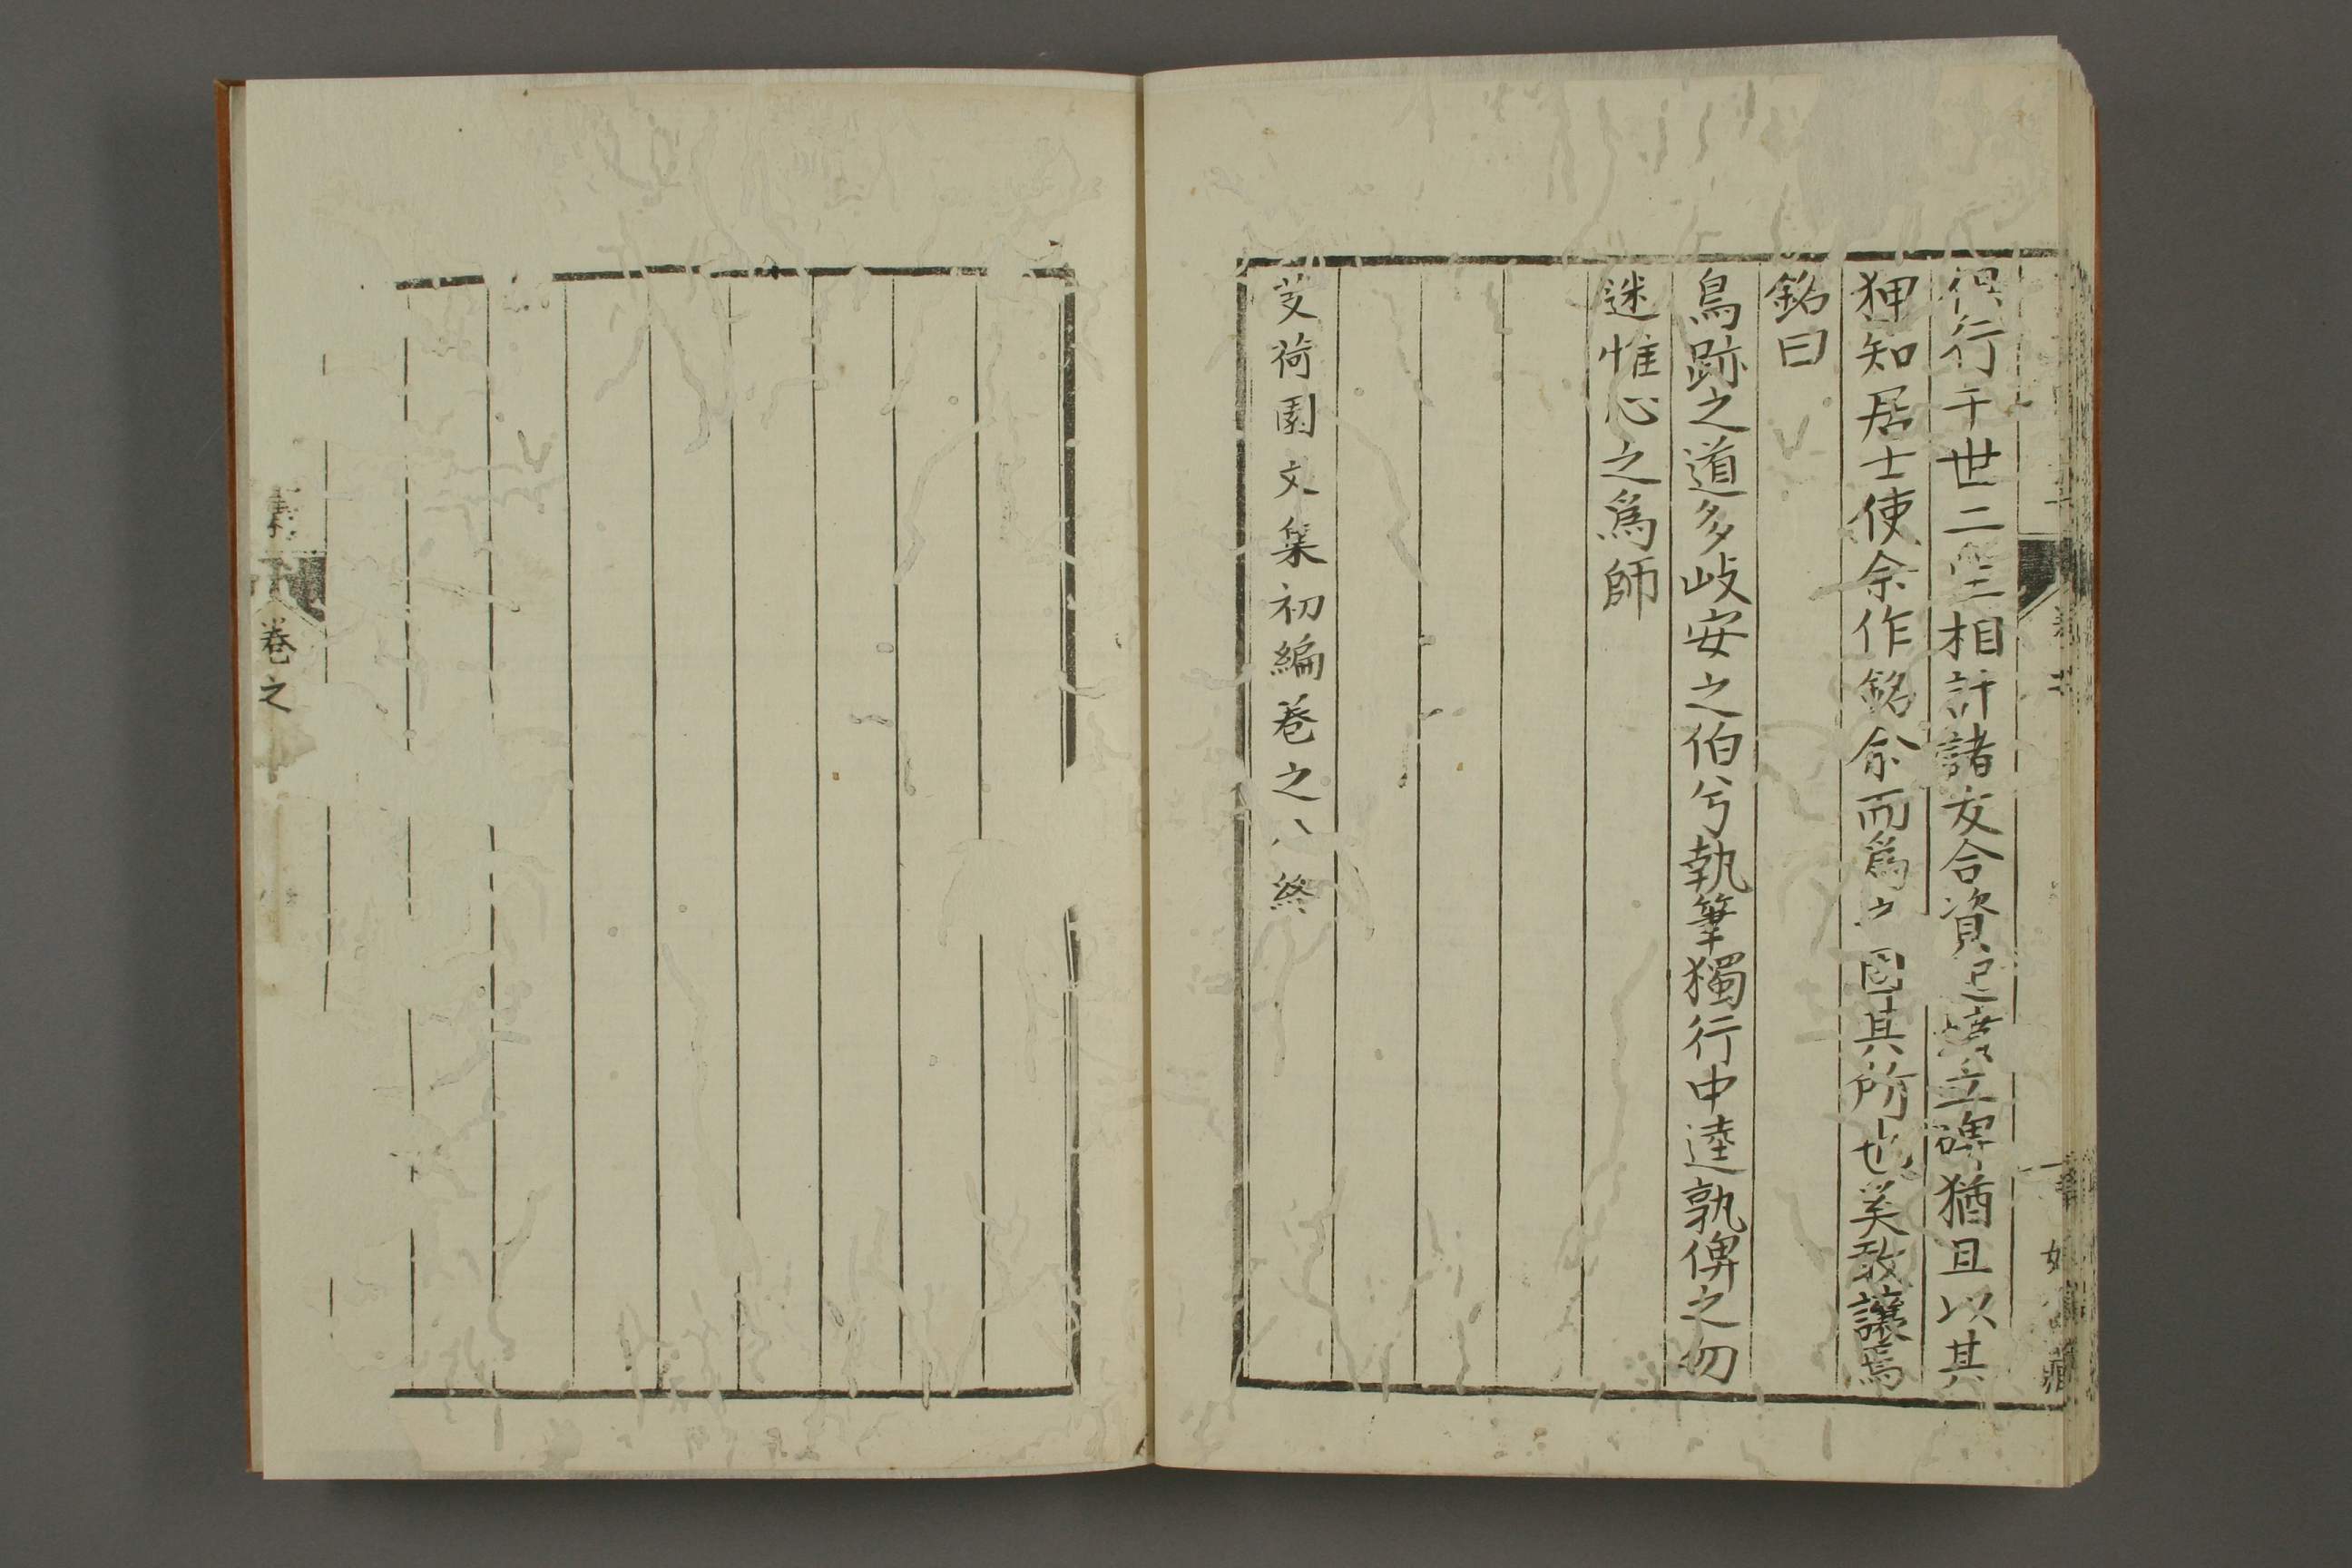 俱行于世二竪相許諸友合資立碑猶且以其
狎知居士使余作銘余而爲之固其所也奚敢讓焉
銘曰
鳥跡之道多岐安之伯兮執筆獨行中逵孰俾之勿
迷惟心之爲師
芰荷園文集初編巻之八終
集
巻之